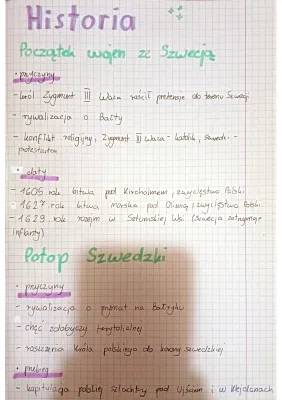 Historia
Początek wojen ze Szwecją
• przyczyny
- król Zygmunt III Waza rościł pretensje do tronu Szwecji
- rywalizacja o Bałty
- konflikt religijny, Zygmunt III Waza - katolik, szwedi -
protestantem
• daty
- 1605 rok bitwa pod Kircholmem, zwycięstwo Polski
- 1627 rok bitwa morska pod Oliwą, zwycięstwo Polski
- 1629 rok rozejm w Sztumskiej Wsi (Szwecja zatrzymuje
Inflanty)
Potop Szwedzki
• przyczyny
- rywalizacja o prymat na Bałtyku
- chęć zdobyczy terytorialnej
- roszczenia króla polskiego do korony szwedzkiej
• przebieg
- kapitulacja polskiej szlachty pod Ujściem i w Kiejdanach